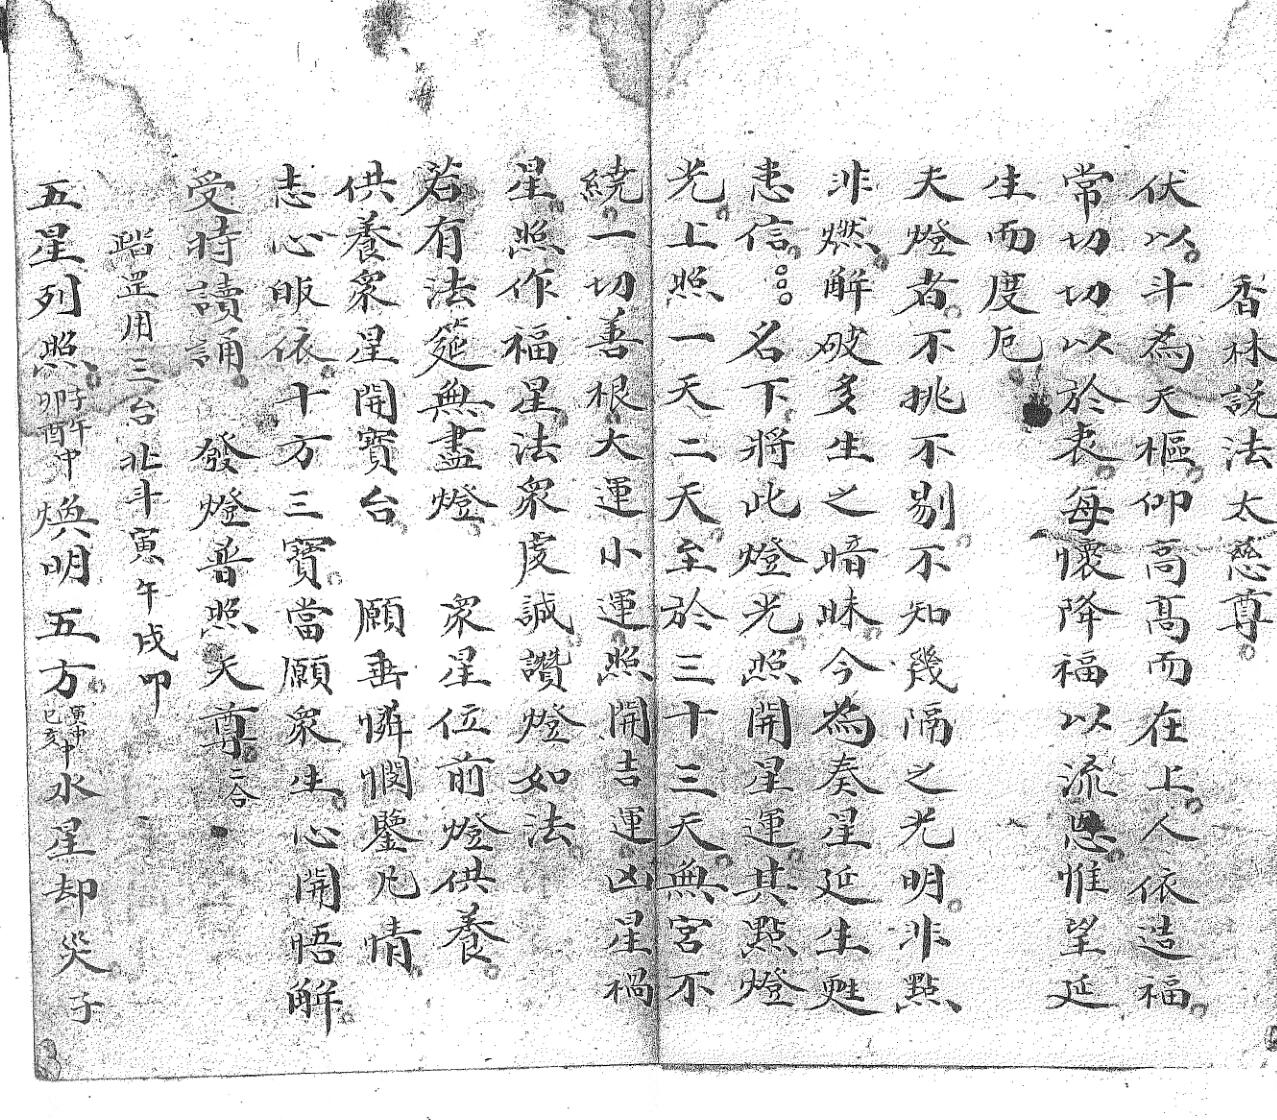 香林説法太慈尊
伏以斗為天樞仰高高而在上人依造福
常切切以於衷每懷降福以流恩惟望延
生而度厄
夫燈者不挑不剔不知幾隔之光明非點
非燃解破多生之暗昧今為奏星延生甦
患信 名下將此燈光照開星運其點燈
光上照一天二天至於三十三天無宮不
繞一切善根大運小運照開吉運凶星禍
星照作福星法衆虔誠讚燈如法
若有法筵無盡燈 衆星位前燈供養
供養衆星開寶台 願垂憐憫鑒凡情
志心皈依十方三寶當願衆生心開悟解
受持讀誦 發燈普照天尊二合
踏罡用三台北斗寅午戌卯
五星列照子午卯酉中煥明五方寅申巳亥中水星却災子